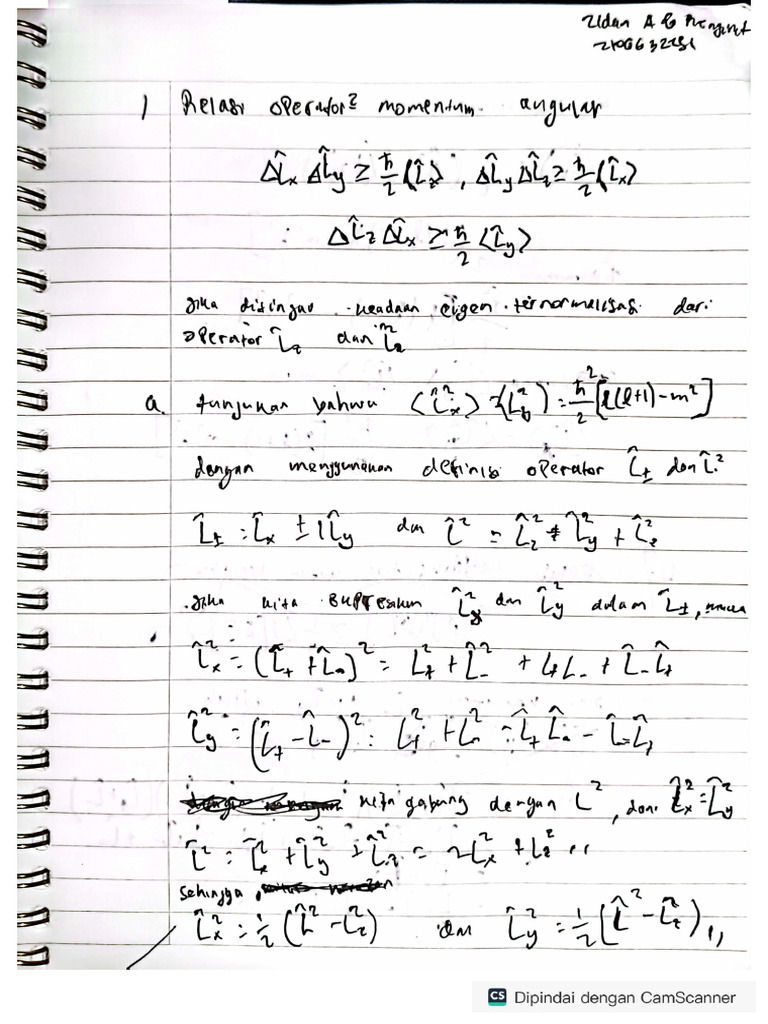 Zidan A
1 Relasi operator² momentum angular
ΔL̂x ΔL̂y ≥ ħ/2 ⟨L̂z⟩ , ΔL̂y ΔL̂z ≥ ħ/2 ⟨L̂x⟩
ΔL̂z ΔL̂x ≥ ħ/2 ⟨L̂y⟩
Jika ditinjau keadaan eigen ternormalisasi dari
operator L̂z dan
a. tunjukan bahwa ⟨L̂x²⟩ = ⟨L̂y²⟩ = ħ²/2 [l(l+1) - m²]
dengan menggunakan definisi operator L̂± dan L̂²
L̂± = L̂x ± iL̂y dan L̂² = L̂z² + L̂y² + L̂z²
Jika kita L̂x² dan L̂y² dalam L̂±, maka
L̂x² = (L̂+ + L̂-)² = L+² + L̂-² + L+L- + L̂-L̂+
L̂y² = (L̂+ - L̂-)² = L+² + L-² - L̂+L̂- - L̂-L̂+
kita gabung dengan L², dan L̂x² = L̂y²
L̂² = L̂x² + L̂y² + L̂z² = 2Lx² + Lz² ,,
sehingga,
L̂x² = 1/2 (L̂² - L̂z²) dan L̂y² = 1/2 (L̂² - L̂z²) ,,
CS Dipindai dengan CamScanner